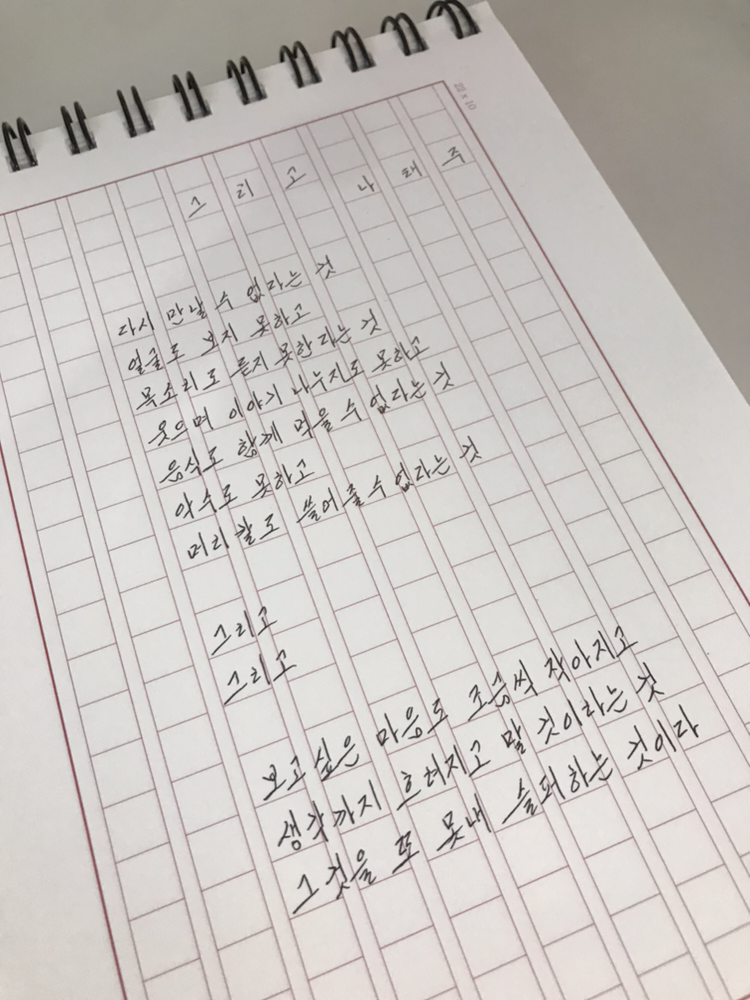 20 x 10
그리고 나태주
다시 만날 수 없다는 것
얼굴도 보지 못하고
목소리도 듣지 못한다는 것
웃으며 이야기 나누지도 못하고
음식도 함께 먹을 수 없다는 것
악수도 못하고
머리칼도 쓸어줄 수 없다는 것
그리고
그리고
보고싶은 마음도 조금씩 작아지고
생각까지 흐려지고 말 것이라는 것
그것을 또 못내 슬퍼하는 것이다